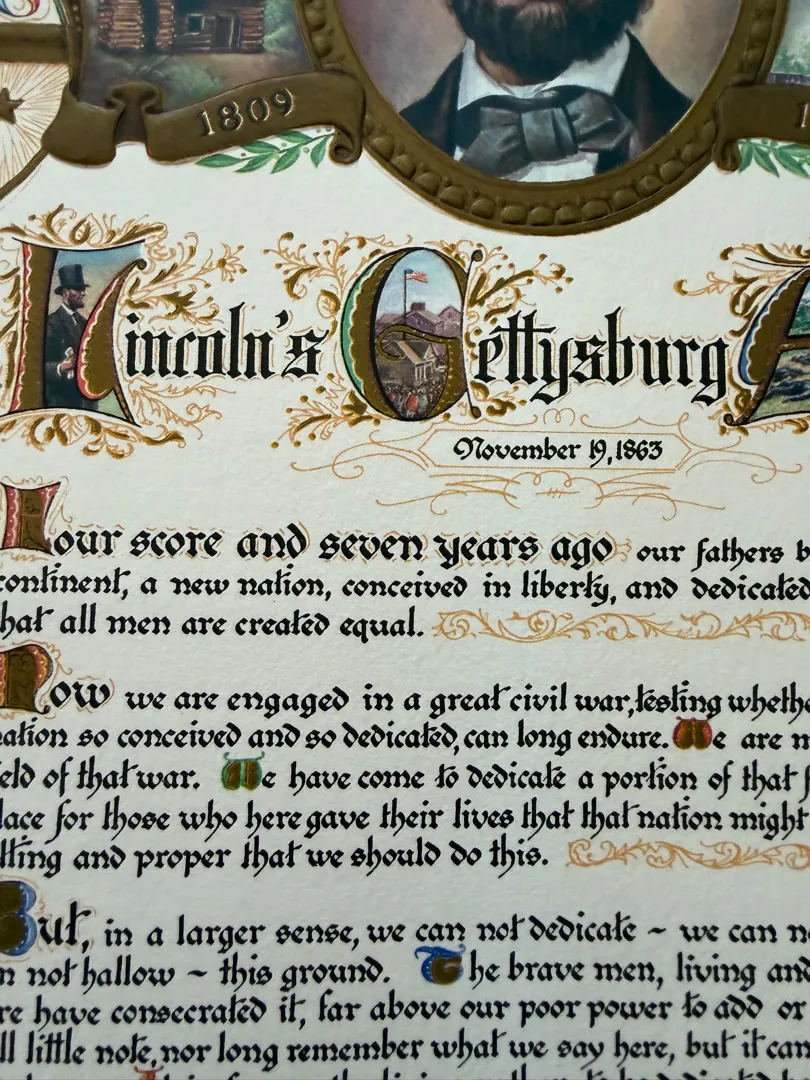 1809
Lincoln's Gettysburg A
November 19, 1863
Four score and seven years ago our fathers b
continent, a new nation, conceived in liberty, and dedicated
hat all men are created equal.
Now we are engaged in a great civil war, testing whethe
nation so conceived and so dedicated, can long endure. We are m
eld of that war. We have come to dedicate a portion of that f
lace for those who here gave their lives that that nation might
tting and proper that we should do this.
But, in a larger sense, we can not dedicate ~ we can no
n not hallow ~ this ground. The brave men, living and
re have consecrated it, far above our poor power to add or
ll little note, nor long remember what we say here, but it can